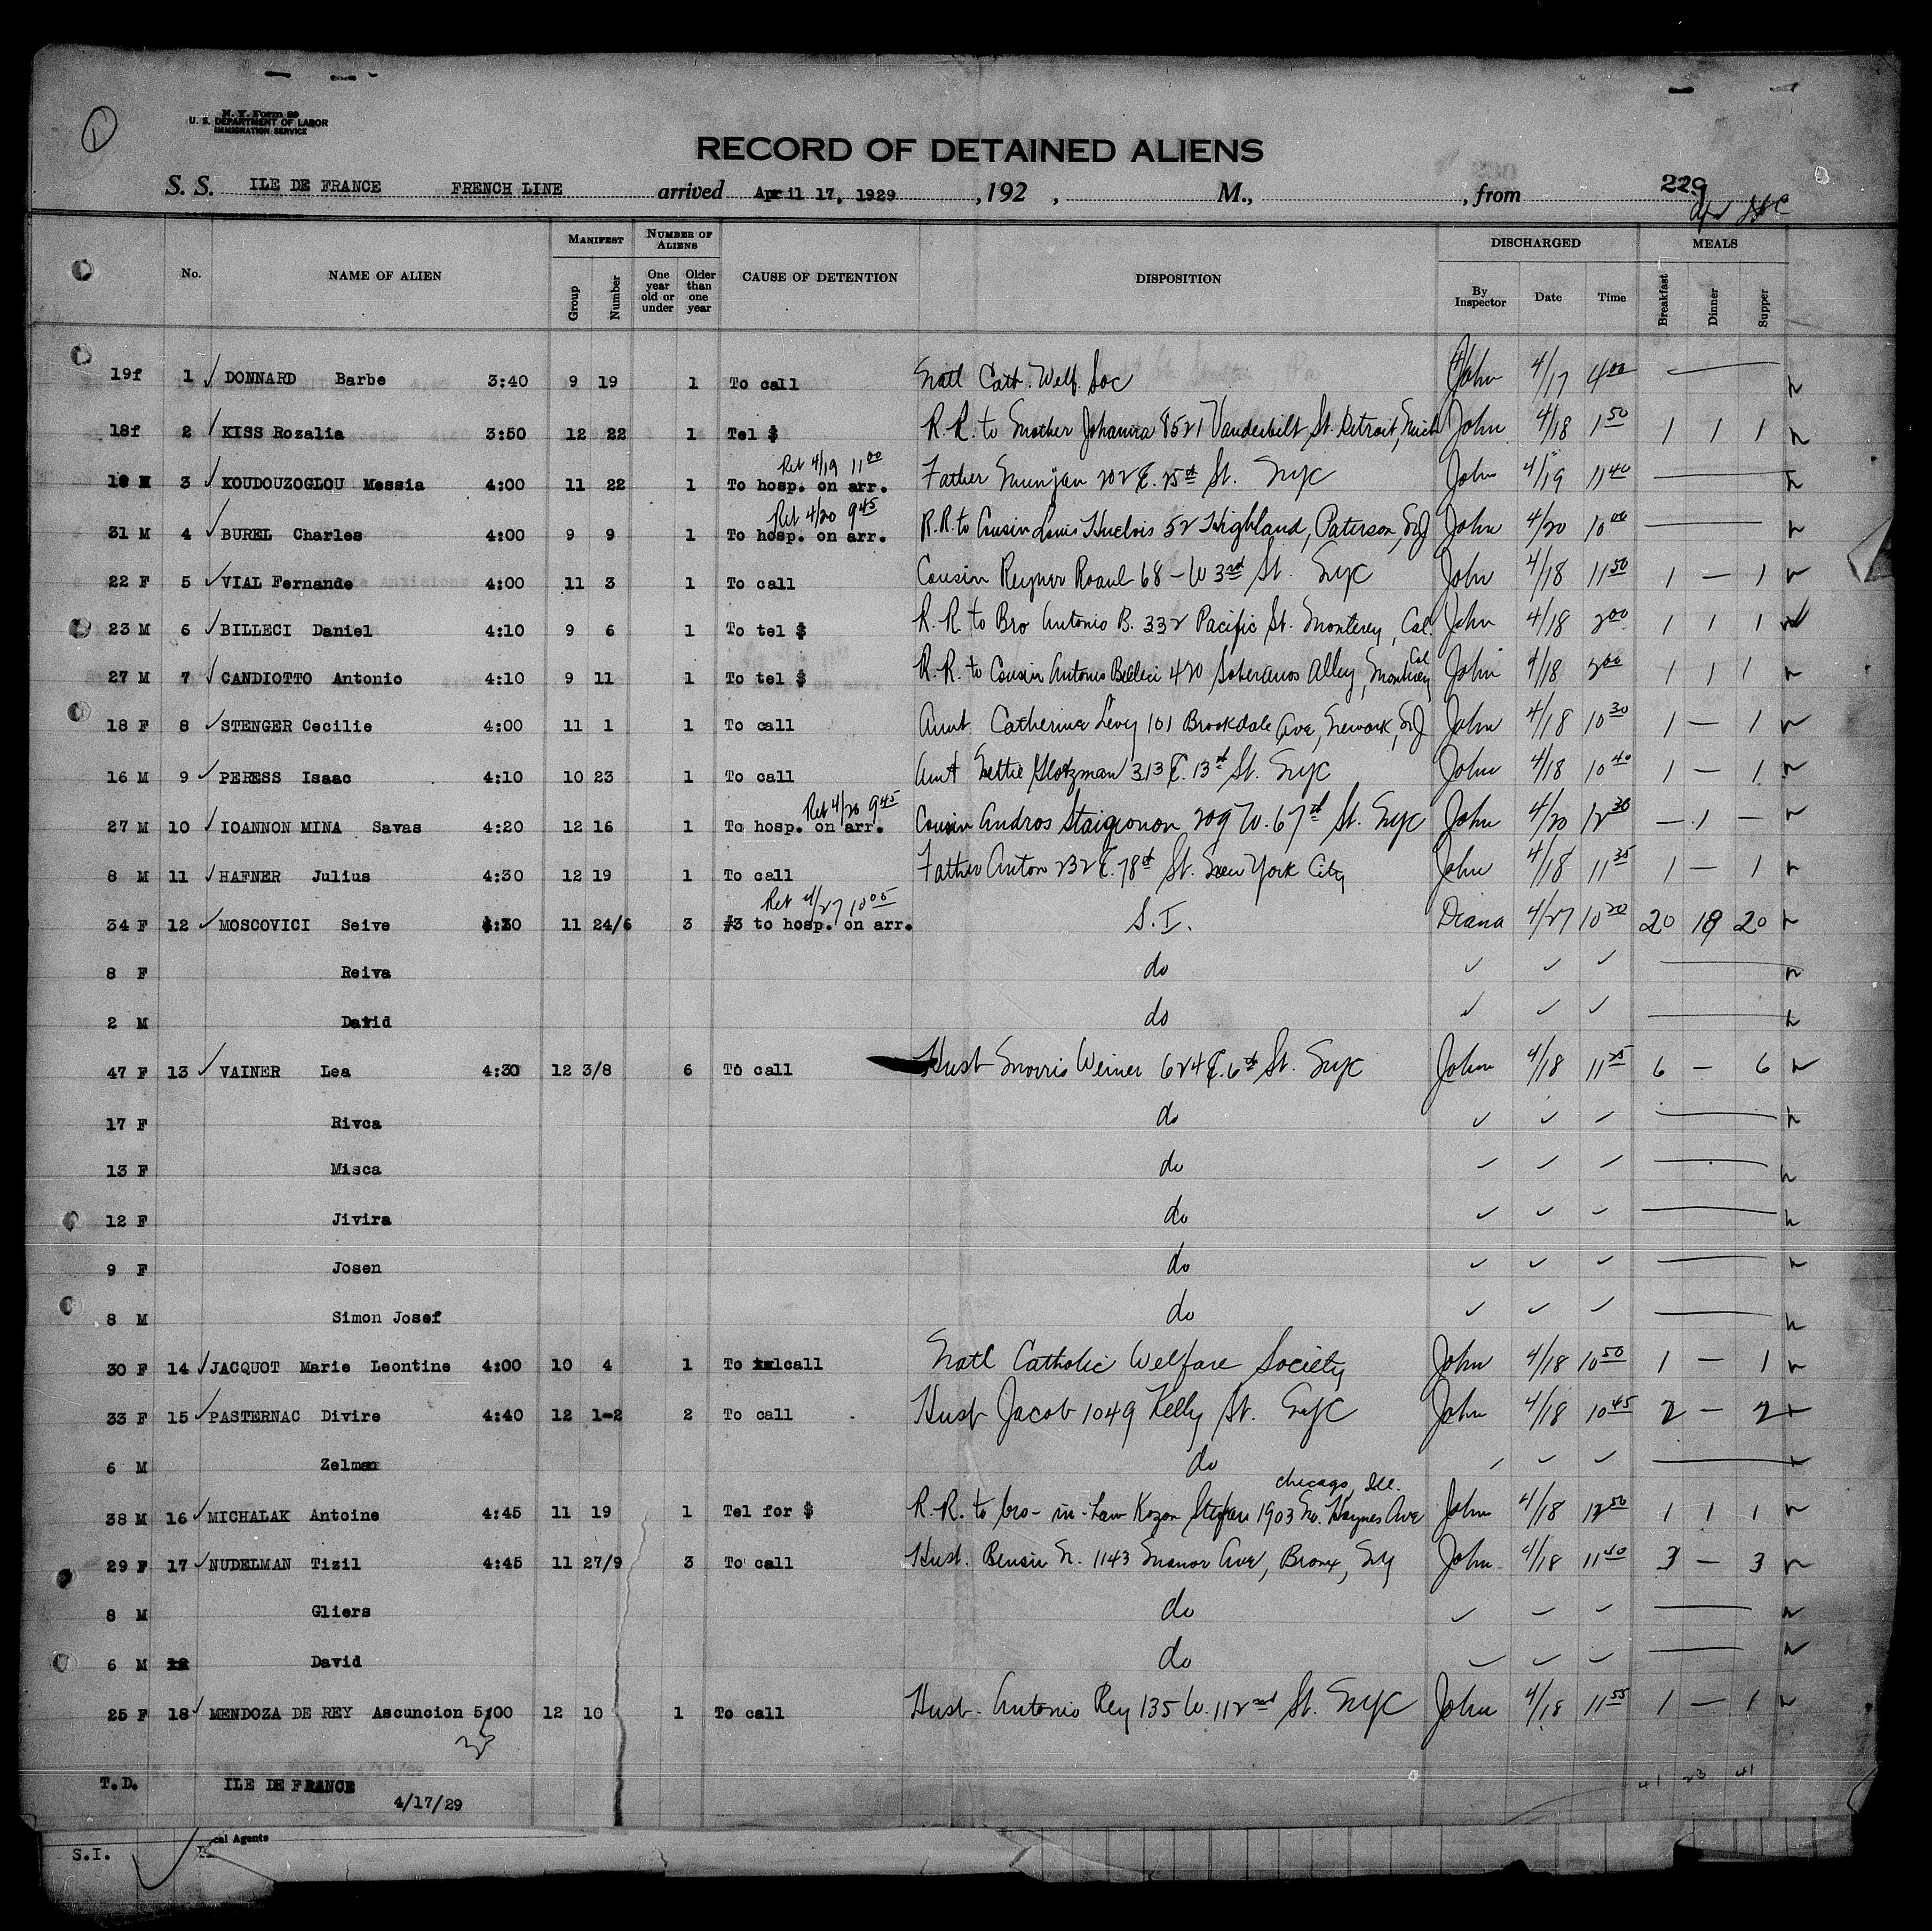 N. Y. Form 99
U. S. DEPARTMENT OF LABOR
IMMIGRATION SERVICE
RECORD OF DETAINED ALIENS
S. S. ILE DE FRANCE FRENCH LINE arrived April 17, 1929 , 192 , M., , from 229
No. NAME OF ALIEN MANIFEST Group Number NUMBER OF ALIENS One year old or under Older than one year CAUSE OF DETENTION DISPOSITION DISCHARGED By Inspector Date Time MEALS Breakfast Dinner Supper
19f 1 ✓ DONNARD Barbe 3:40 9 19 1 To call Natl Cath. Welf. Soc John 4/17 4 00 —
18f 2 ✓ KISS Rozalia 3:50 12 22 1 Tel $ R.R. to Mother Johanna 8521 Vanderbilt St. Detroit, Mich John 4/18 1 50 1 1 1
Ret 4/19 11 00
3 ✓ KOUDOUZOGLOU Messia 4:00 11 22 1 To hosp. on arr. Father 202 E. 25th St. NYC John 4/19 11 40 —
Ret 4/20 9 45
31 M 4 ✓ BUREL Charles 4:00 9 9 1 To hosp. on arr. R.R. to Cousin Louis 52 Highland, Paterson, NJ John 4/20 10 00 —
22 F 5 ✓ VIAL Fernande 4:00 11 3 1 To call Cousin 68 - W 3rd St. NYC John 4/18 11 50 1 — 1
23 M 6 ✓ BILLECI Daniel 4:10 9 6 1 To tel $ R.R. to Bro Antonio B. 332 Pacific St. Monterey, Cal. John 4/18 2 00 1 1 1
27 M 7 ✓ CANDIOTTO Antonio 4:10 9 11 1 To tel $ R.R. to Cousin Antonio Belleci 420 Alley, Monterey Cal John 4/18 2 00 1 1 1
18 F 8 ✓ STENGER Cecilie 4:00 11 1 1 To call Aunt Catherine Levy 101 Brookdale Ave, Newark, NJ John 4/18 10 30 1 — 1
16 M 9 ✓ PERESS Isaac 4:10 10 23 1 To call Aunt Nettie 313 E. 13th St. NYC John 4/18 10 40 1 — 1
Ret 4/20 9 45
27 M 10 ✓ IOANNON MINA Savas 4:20 12 16 1 To hosp. on arr. Cousin Andros 209 W. 67th St. NYC John 4/20 12 30 — 1 —
8 M 11 ✓ HAFNER Julius 4:30 12 19 1 To call Father Anton 232 E. 78th St. New York City John 4/18 11 35 1 — 1
Ret 4/27 10 05
34 F 12 ✓ MOSCOVICI Seive 4:30 11 24/6 3 #3 to hosp. on arr. S.I. Diana 4/27 10 20 20 19 20
8 F Reiva do ✓ ✓ ✓ —
2 M David do ✓ ✓ ✓ —
47 F 13 ✓ VAINER Lea 4:30 12 3/8 6 To call Husb Morris Weiner 624 E. 6th St. NYC John 4/18 11 25 6 — 6
17 F Rivca do ✓ ✓ —
13 F Misca do ✓ ✓ ✓ —
12 F Jivira do ✓ ✓ —
9 F Josen do ✓ ✓ ✓ —
8 M Simon Josef do ✓ ✓ ✓ —
30 F 14 ✓ JACQUOT Marie Leontine 4:00 10 4 1 To call Natl Catholic Welfare Society John 4/18 10 50 1 — 1
33 F 15 ✓ PASTERNAC Divire 4:40 12 1-2 2 To call Husb Jacob 1049 Kelly St. NYC John 4/18 10 45 2 — 2
6 M Zelman do ✓ ✓ —
Chicago, Ill.
38 M 16 ✓ MICHALAK Antoine 4:45 11 19 1 Tel for $ R.R. to bro-in-Law Kozon Stefan 1903 No. Haynes Ave John 4/18 12 50 1 1 1
29 F 17 ✓ NUDELMAN Tizil 4:45 11 27/9 3 To call Husb. Bensin N. 1143 Manor Ave, Bronx, NY John 4/18 11 40 3 — 3
8 M Gliers do ✓ ✓ ✓ —
6 M David do ✓ ✓ ✓ —
25 F 18 ✓ MENDOZA DE REY Ascuncion 5:00 12 10 1 To call Husb. Antonio Rey 135 W. 112nd St. NYC John 4/18 11 55 1 — 1
41 23 41
T.D. ILE DE FRANCE
4/17/29
cal Agents
S.I.